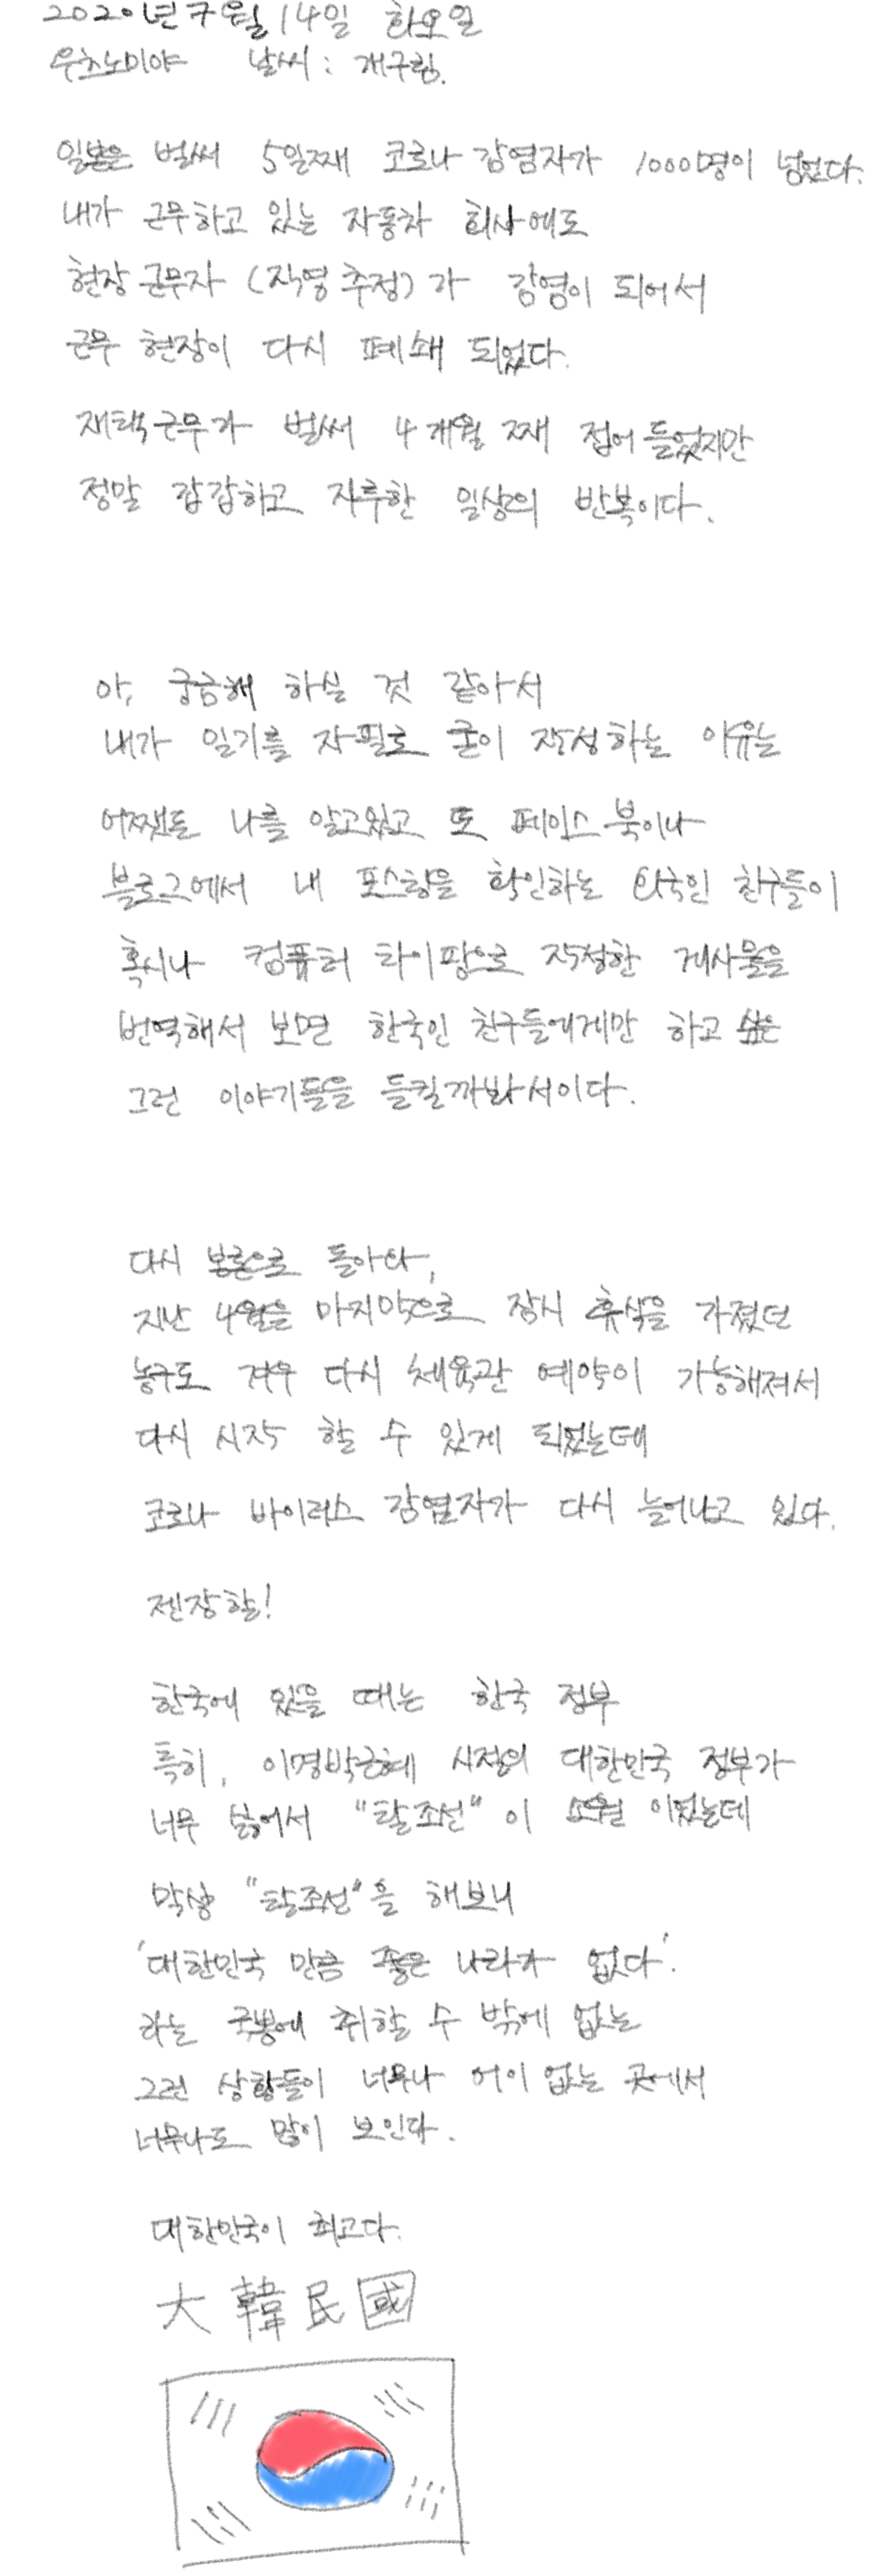 2020년 7월 14일 화요일
우츠노미야 날씨 : 개구림.
일본은 벌써 5일째 코로나 감염자가 1000명이 넘었다.
내가 근무하고 있는 자동차 회사에도
현장 근무자 (직영 추정) 가 감염이 되어서
근무 현장이 다시 폐쇄 되었다.
재택근무가 벌써 4개월 째 접어 들었지만
정말 갑갑하고 지루한 일상의 반복이다.
아, 궁금해 하실 것 같아서
내가 일기를 자필로 굳이 작성하는 이유는
어쨌든 나를 알고있고 또 페이스 북이나
블로그에서 내 포스팅을 확인하는 외국인 친구들이
혹시나 컴퓨터 타이핑으로 작성한 게시물을
번역해서 보면 한국인 친구들에게만 하고 싶은
그런 이야기들을 들킬까봐서이다.
다시 본론으로 돌아와,
지난 4월을 마지막으로 잠시 휴식을 가졌던
농구도 겨우 다시 체육관 예약이 가능해져서
다시 시작 할 수 있게 되었는데
코로나 바이러스 감염자가 다시 늘어나고 있다.
젠장할!
한국에 있을 때는 한국 정부
특히, 이명박근혜 시절의 대한민국 정부가
너무 싫어서 "탈조선" 이 소원 이었는데
막상 "탈조선"을 해보니
'대한민국 만큼 좋은 나라가 없다'.
라는 국뽕에 취할 수 밖에 없는
그런 상황들이 너무나 어이 없는 곳에서
너무나도 많이 보인다.
대한민국이 최고다.
大韓民國